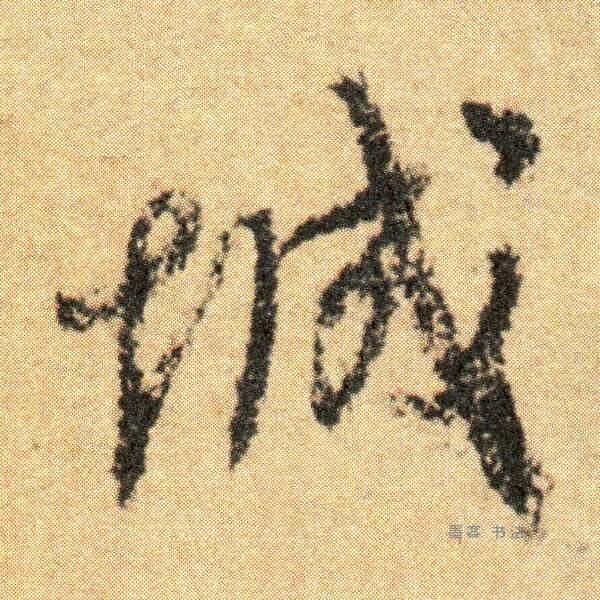 城
墨客 书法